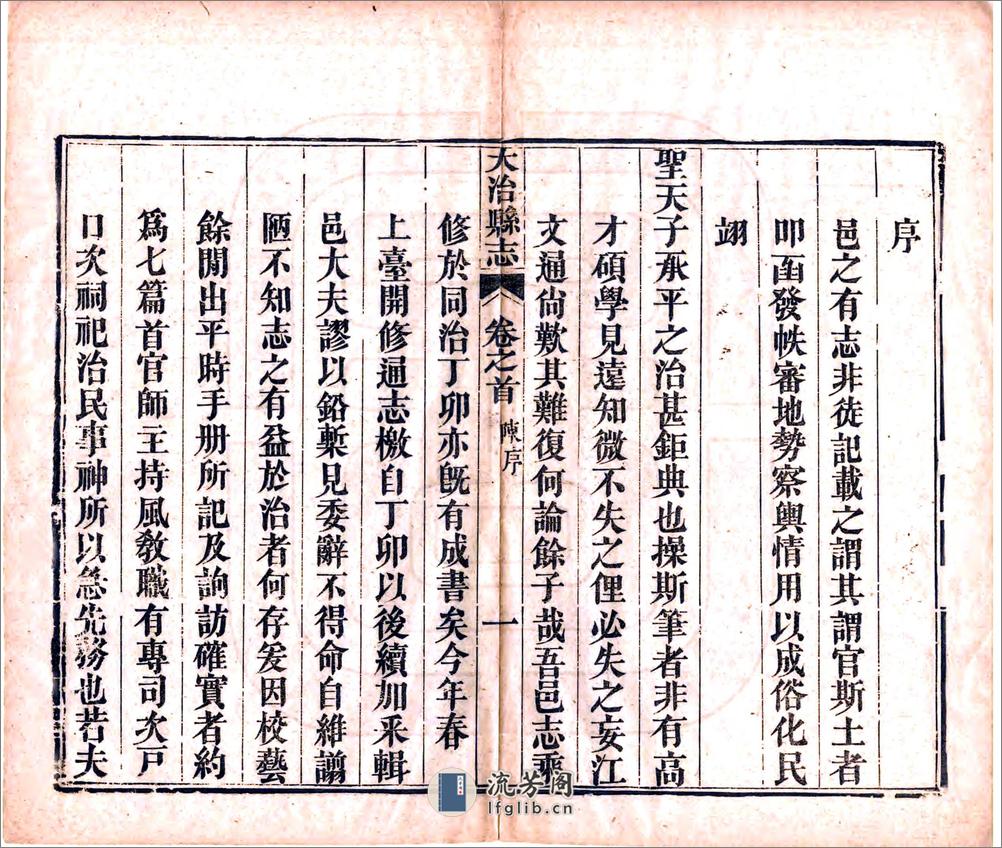 序
邑之有志非徒記載之謂其謂官斯土者
叩函發帙審地勢察輿情用以成俗化民
翊
聖天子承平之治甚鉅典也操斯筆者非有高
才碩學見遠知微不失之俚必失之妄江
文通尚歎其難復何論餘子哉吾邑志乘
大冶縣志 卷之首 陳序 一
修於同治丁卯亦旣有成書矣今年春
上臺開修通志檄自丁卯以後續加采輯
邑大夫謬以鉛槧見委辭不得命自維譾
陋不知志之有益於治者何存爰因校藝
餘閒出平時手册所記及詢訪確實者約
爲七篇首官師主持風敎職有專司次戸
口次祠祀治民事神所以急先務也若夫
流芳阁
lfglib.cn